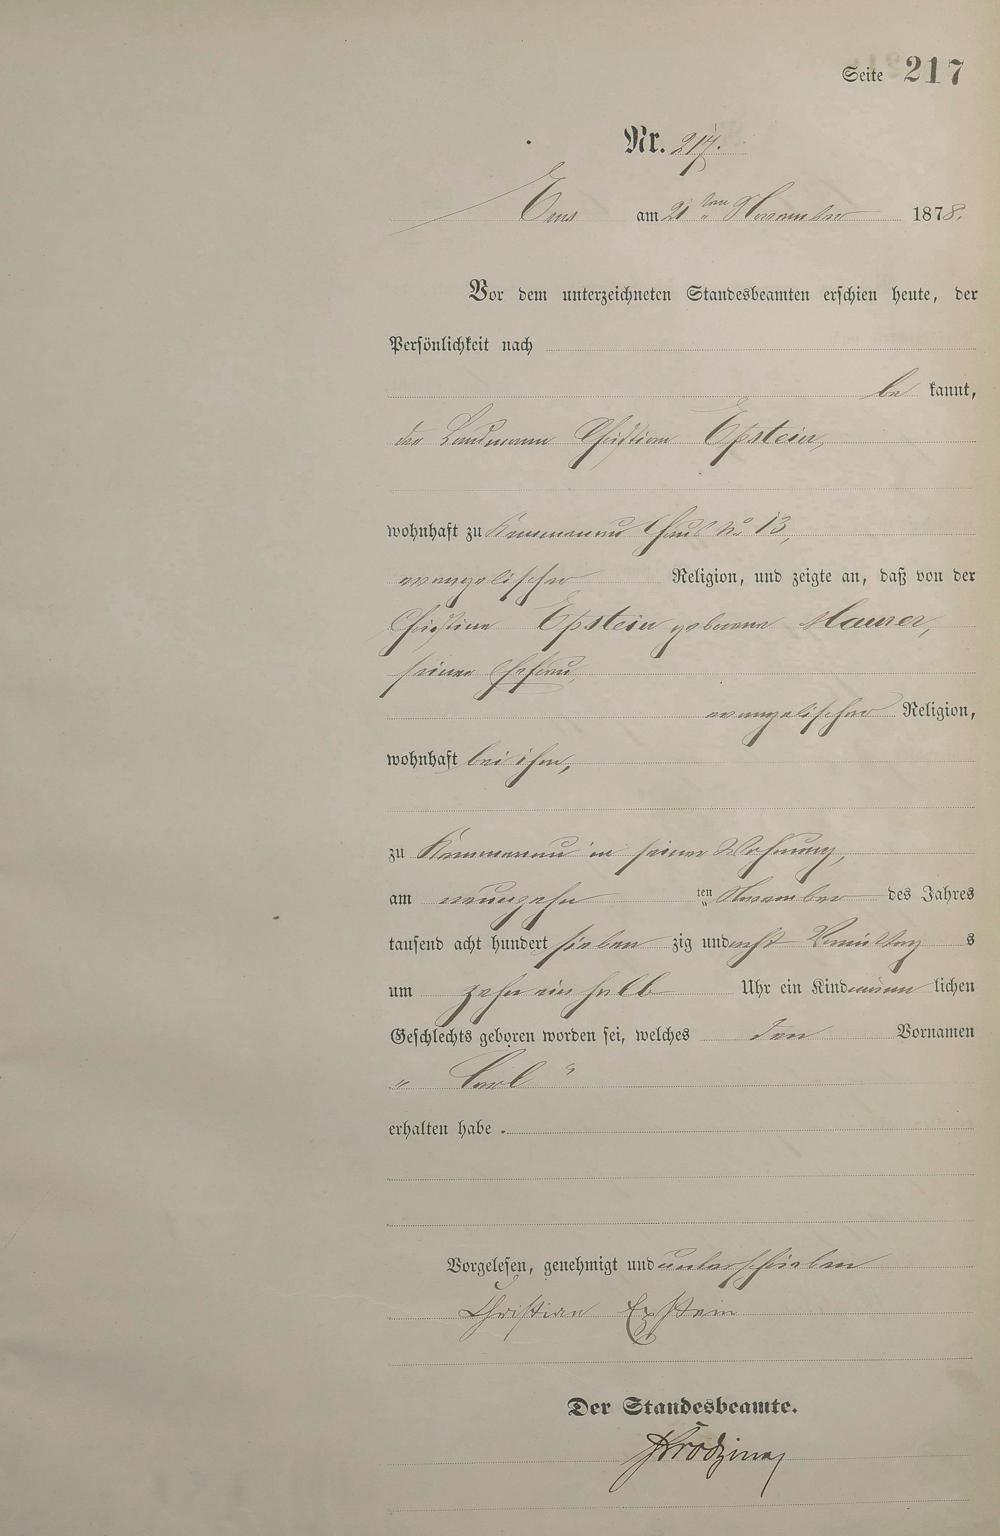 Seite 217
Nr. 217.
Ems am 21ten November 1878.
Vor dem unterzeichneten Standesbeamten erschien heute, der
Persönlichkeit nach
be kannt,
der Landmann Christian Epstein,
wohnhaft zu Kemmenau Haus No 13,
evangelischer Religion, und zeigte an, daß von der
Christine Epstein geborene Maurer,
seiner Ehefrau,
evangelischer Religion,
wohnhaft bei ihm,
zu Kemmenau in seiner Wohnung,
am neunzehn ten November des Jahres
tausend acht hundert sieben zig und acht Vormittag s
um zehn ein halb Uhr ein Kind männ lichen
Geschlechts geboren worden sei, welches den Vornamen
„ Carl “
erhalten habe.
Vorgelesen, genehmigt und unterschrieben
Christian Epstein
Der Standesbeamte.